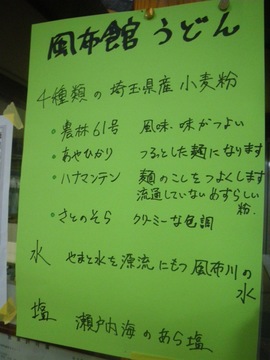 風布館 うどん
4種類の埼玉県産小麦粉
・農林61号 風味、味がつよい
・あやひかり つるっとした麺になります
・ハナマンテン 麺のこしをつよくします
流通していないめずらしい
粉.
・さとのそら クリーミーな色調
水 やまと水を源流にもつ風布川の
水
塩 瀬戸内海のあら塩